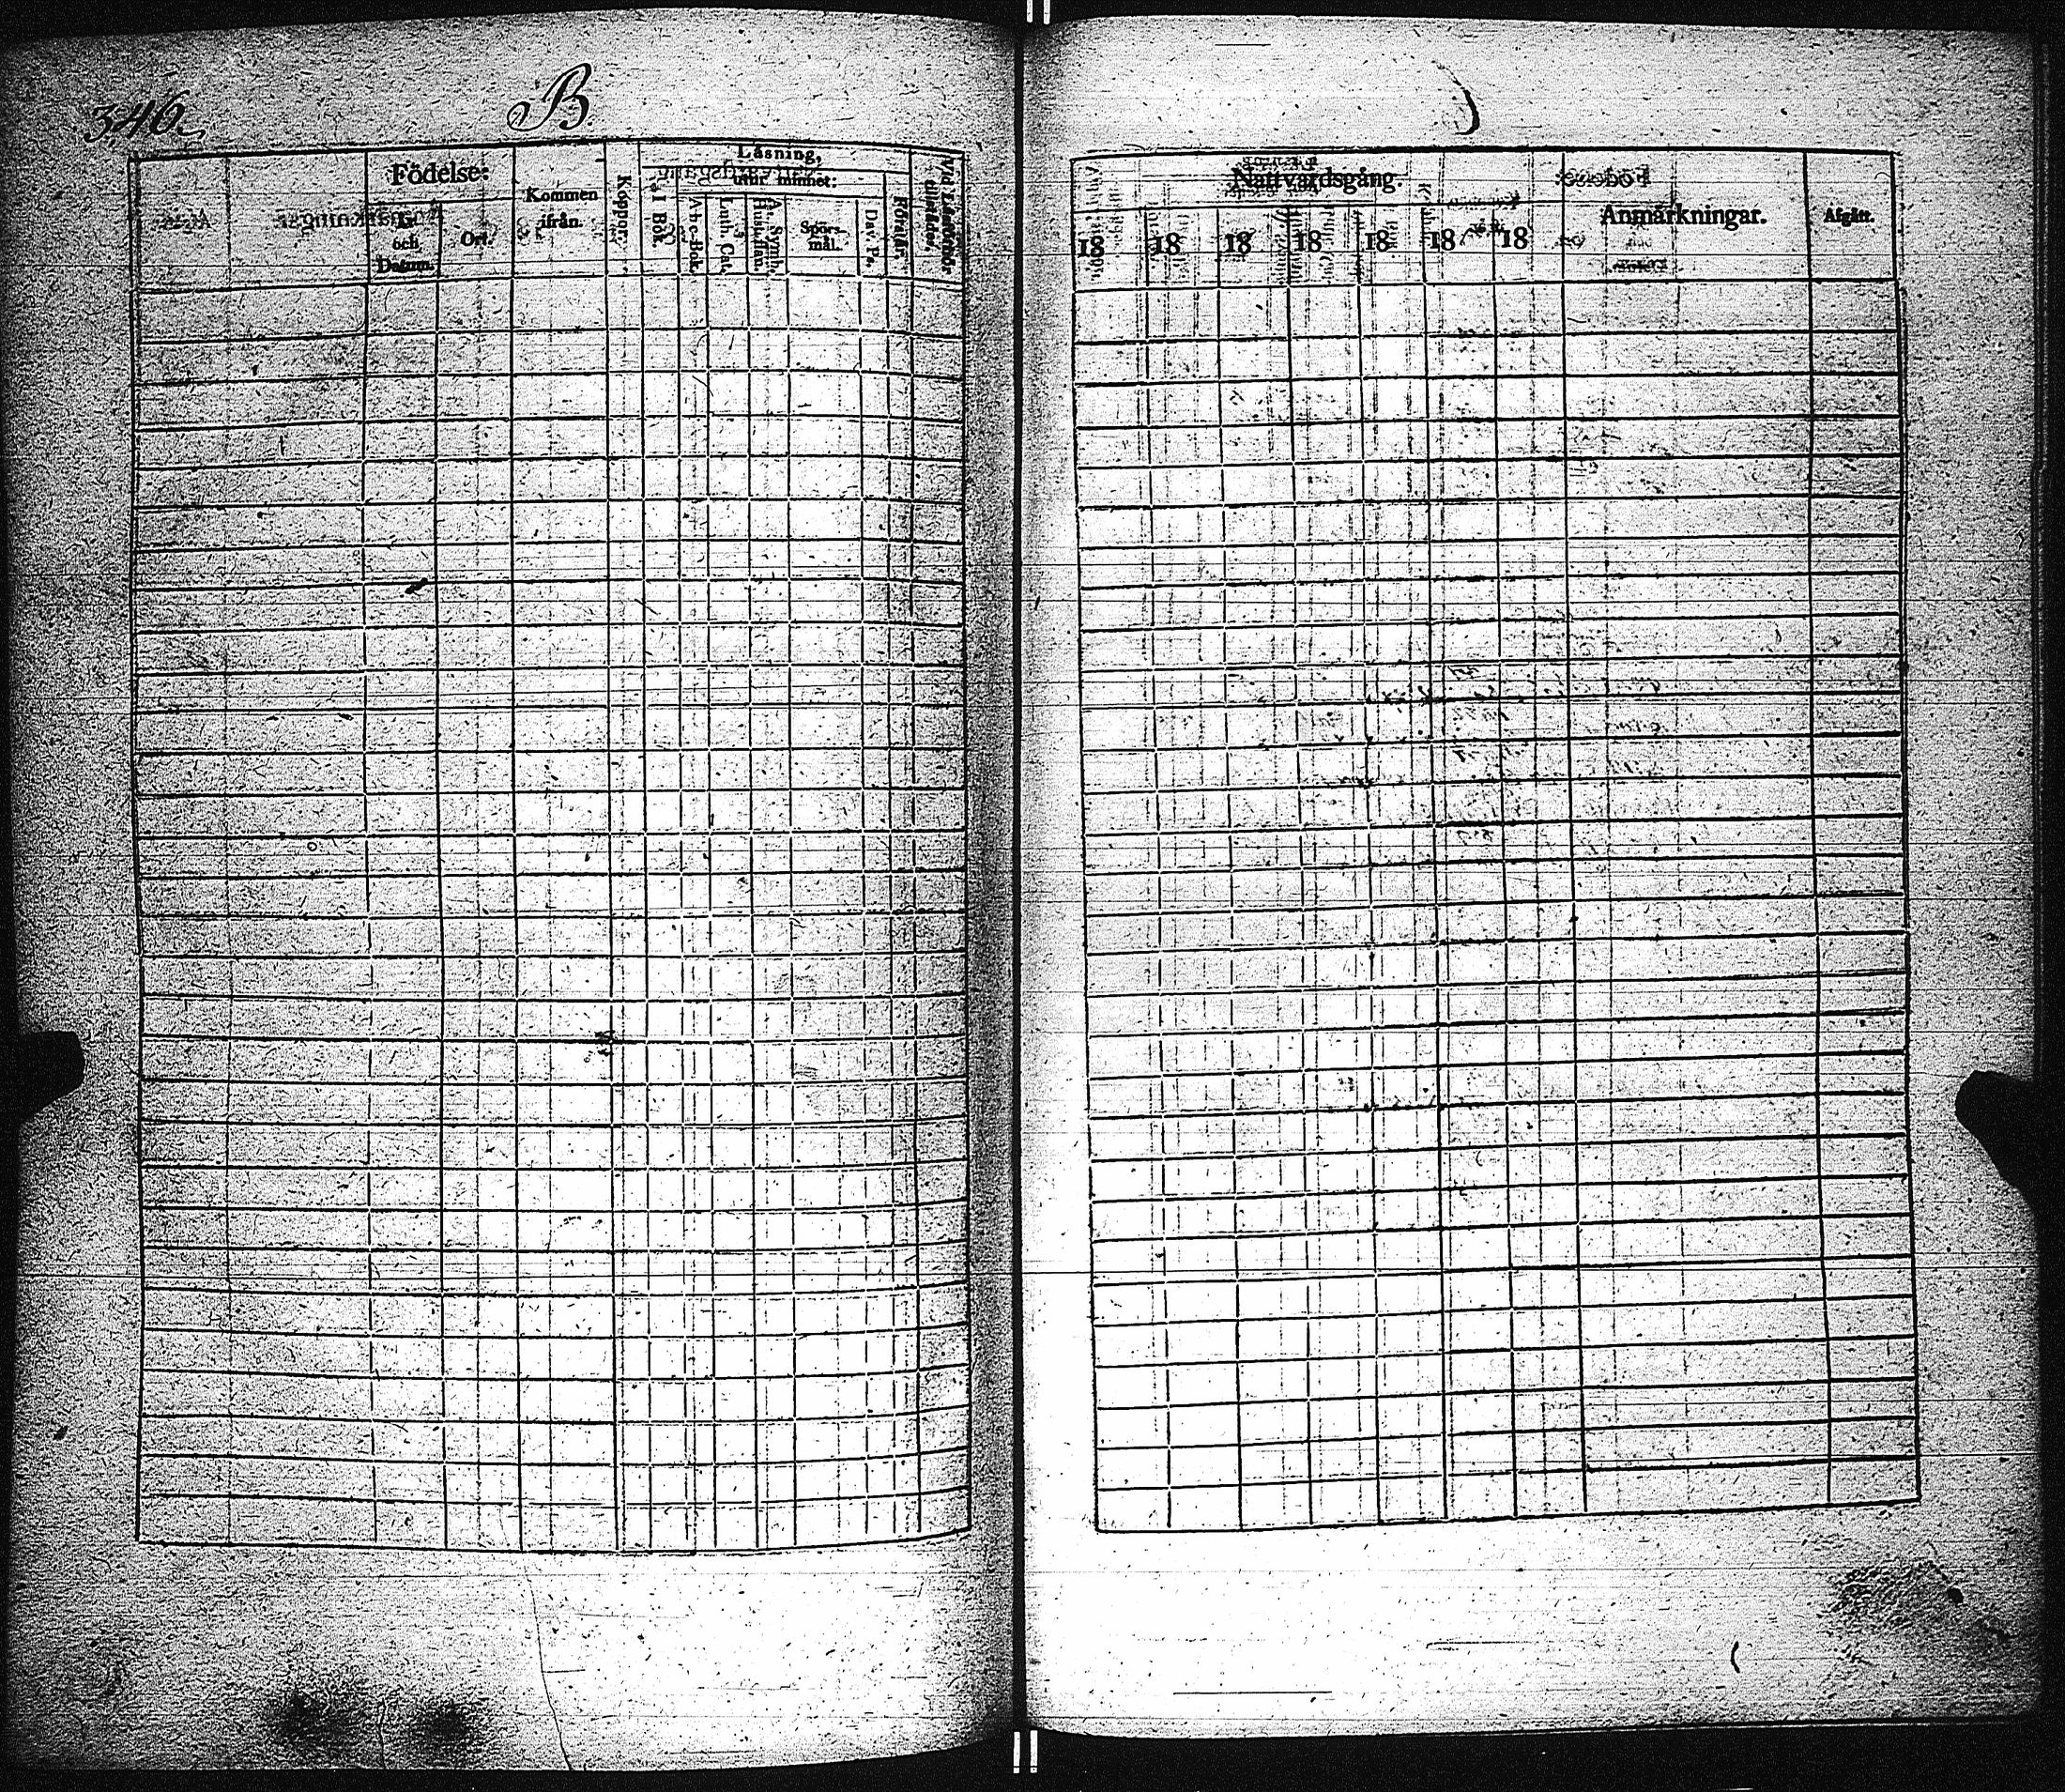 346.
B.
Födelse:
År och Datum.
Ort.
Kommen ifrån.
Koppor.
Läsning,
I Bok.
utur minnet:
A-b-c-Bok.
Luth. Cat.
A. Symb. Hust. Taf.
Spörs-mål.
Dav. Ps.
Förstår.
Vid Läsförhör tillstädes.
Nattvardsgång.
18 18 18 18 18 18 18
Anmärkningar.
Afgått.